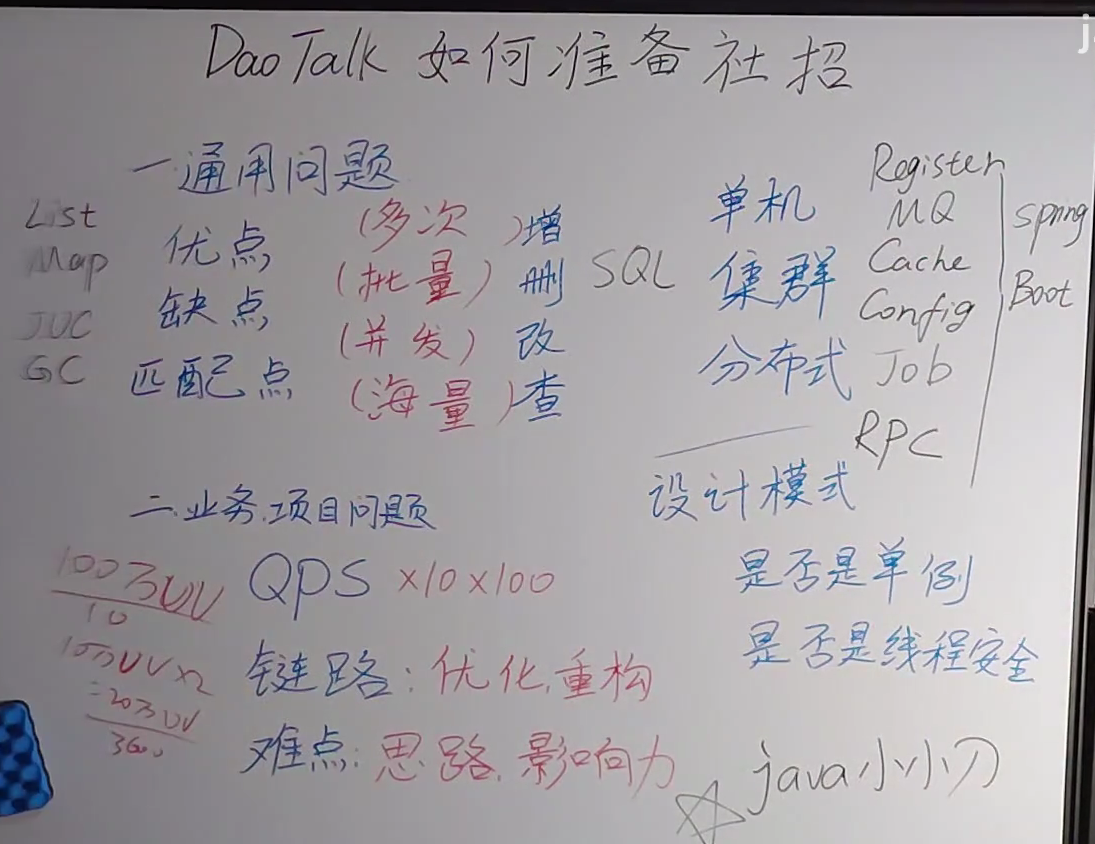 DaoTalk 如何准备社招
一 通用问题
List
Map
JUC
GC
优点
缺点
匹配点
(多次)增
(批量)删
(并发)改
(海量)查
SQL
单机
集群
分布式
Register
MQ
Cache
Config
Job
RPC
spring
Boot
设计模式
是否是单例
是否是线程安全
二.业务.项目问题
100万UV
10
10万UV×2
=20万UV
3600
QPS ×10×100
链路:优化.重构
难点:思路.影响力
java小小刀